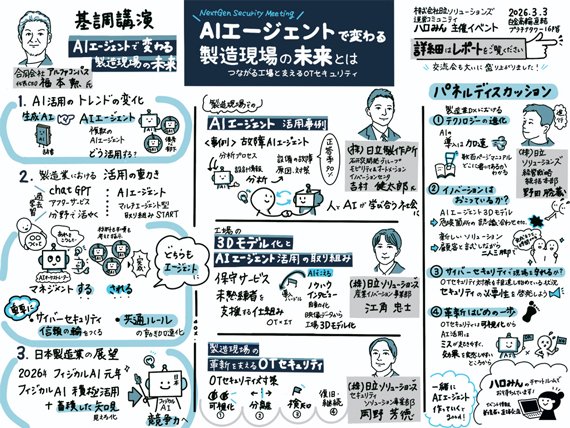 基調講演
AIエージェントで変わる
製造現場の未来
合同会社アルファコンパス
代表CEO
福本 勲 氏
1. AI活用のトレンドの変化
生成AI
AIエージェント
作業の
AIエージェント
どう活用する？
2. 製造業における 活用の動き
chat GPT
アフターサービス
分野で活かく
AIエージェント
マルチエージェント型
取り組みSTART
マネジメント する される
どちらも
エージェントに
重要！
サイバーセキュリティ
信頼の輪をつくる
共通ルール
の動きが進化
3. 日本製造業の展望
2026年 フィジカルAI元年
フィジカルAI 積極活用
+ 蓄積した知見
見える化
フィジカル
AI
競争力へ
NextGen Security Meeting
AIエージェントで変わる
製造現場の未来とは
つながる工場と支えるOTセキュリティ
製造現場での
AIエージェント 活用事例
<事例> 故障AIエージェント
分析プロセス
設計情報
分析
設備の故障
原因、対策
人とAIが学び合う社会に
(株)日立製作所
研究開発グループ
モビリティ&オートメーション
イノベーションセンタ
志村 健太郎 氏
工場の
3Dモデル化と
AIエージェント活用の取り組み
保守サービス
未熟練者を
支援する仕組み
OT×IT
AIによる
ノウハウ
インタビュー
自動化
映像データから
工場3Dモデル化
(株)日立ソリューションズ
産業イノベーション事業部
江角 忠士
製造現場の
革新を支えるOTセキュリティ
OTセキュリティ対策
① 可視化
② 分離
③ 検知
復旧・
継続 ④
(株)日立ソリューションズ
セキュリティ
ソリューション事業部
岡野 芳徳
株式会社日立ソリューションズ
運営コミュニティ
ハロみん 主催イベント
2026.3.3
詳細はレポートをご覧ください
交流会も大いに盛り上がりました！
パネルディスカッション
製造業DXにおける
① テクノロジーの進化
AIの
導入は加速
② イノベーションは
おこっているか？
AIエージェント3Dモデル
危険箇所の認識合わせで、
新しいソリューション
顧客と試しながら
二人三脚で！
(株)日立
ソリューションズ
経営戦略
統括本部
野田 勝義
③ サイバーセキュリティは現場を守れるか？
OTセキュリティ対策を推進し始めている状況
セキュリティの必要性を啓発しよう！
④ 革新をはじめの一歩
OTセキュリティは可視化から
AI活用は
ミスが起きやすく
効果を実感しやすい
ところから
一緒に
AIエージェント
作っていくぞ
2000
ハロみんのチャットルームで
お待ちしています！